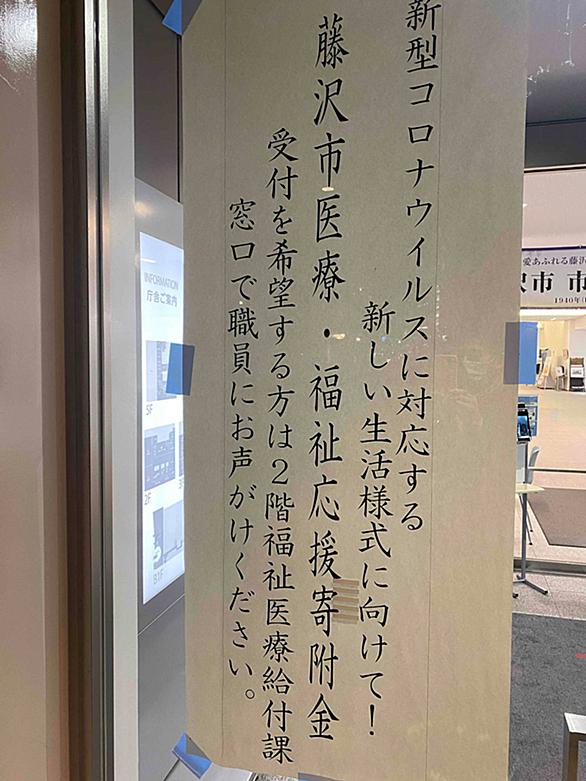 新型コロナウイルスに対応する
新しい生活様式に向けて！
藤沢市医療・福祉応援寄附金
受付を希望する方は２階福祉医療給付課
窓口で職員にお声がけください。
INFORMATION
庁舎ご案内
5F
2F
B1F
愛あふれる藤沢
沢市 市
1940年